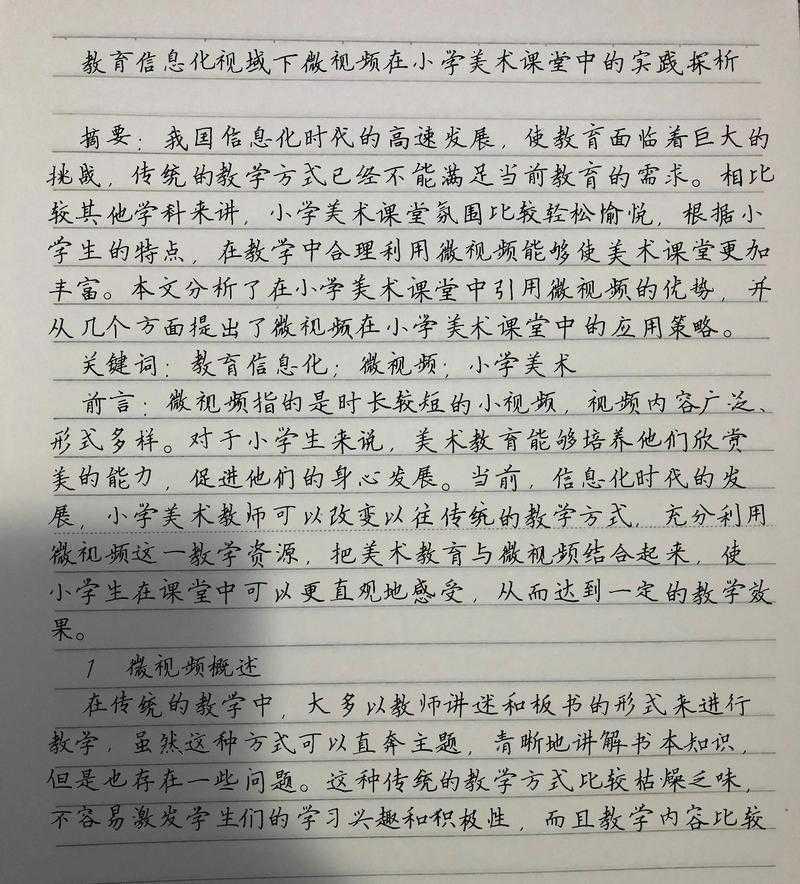 教育信息化视域下微视频在小学美术课堂中的实践探析
摘要：我国信息化时代的高速发展，使教育面临着巨大的
挑战，传统的教学方式已经不能满足当前教育的需求。相比
较其他学科来讲，小学美术课堂氛围比较轻松愉悦，根据小
学生的特点，在教学中合理利用微视频能够使美术课堂更加
丰富。本文分析了在小学美术课堂中引用微视频的优势，并
从几个方面提出了微视频在小学美术课堂中的应用策略。
关键词：教育信息化；微视频；小学美术
前言：微视频指的是时长较短的小视频，视频内容广泛、
形式多样。对于小学生来说，美术教育能够培养他们欣赏
美的能力，促进他们的身心发展。当前，信息化时代的发
展，小学美术教师可以改变以往传统的教学方式，充分利用
微视频这一教学资源，把美术教育与微视频结合起来，使
小学生在课堂中可以更直观地感受，从而达到一定的教学效
果。
1 微视频概述
在传统的教学中，大多以教师讲述和板书的形式来进行
教学，虽然这种方式可以直奔主题，清晰地讲解书本知识，
但是也存在一些问题。这种传统的教学方式比较枯燥乏味，
不容易激发学生们的学习兴趣和积极性，而且教学内容比较